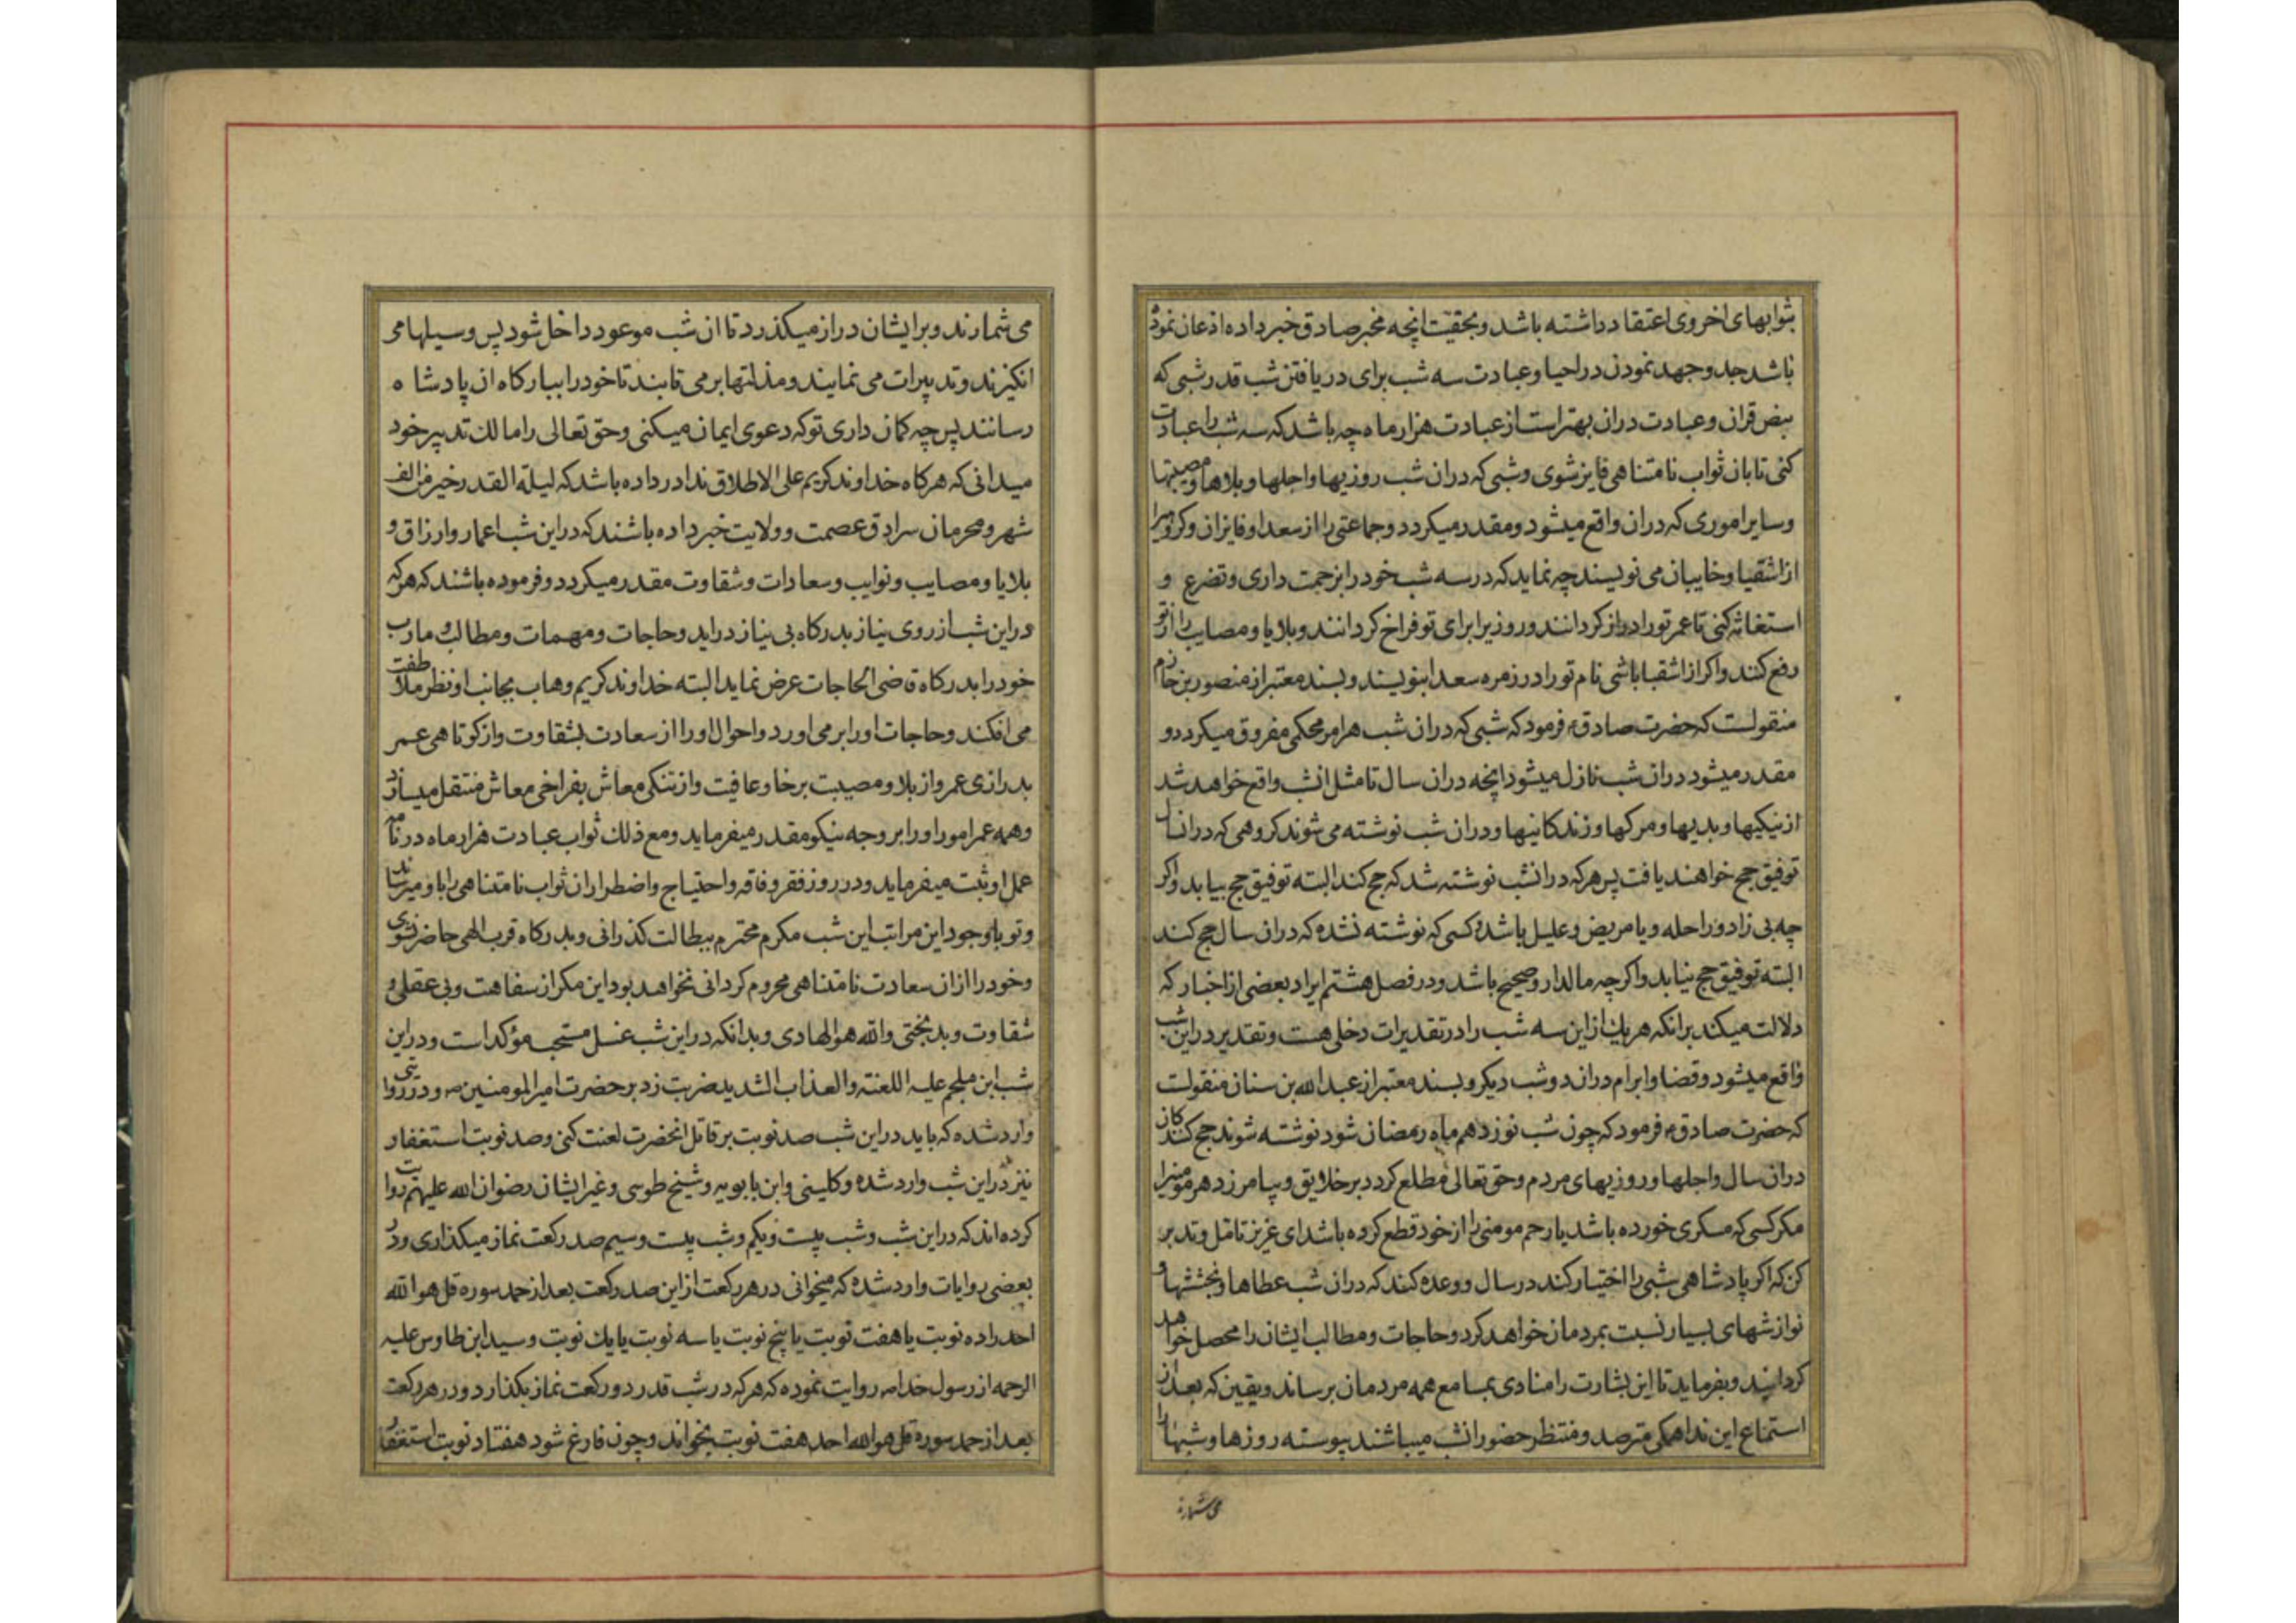 بثوابهای اخروی اعتقاد داشته باشد و بحقیت انچه مخبر صادق خبر داده اذعان نموده
باشد جد و جهد نمودن در احیا و عبادت سه شب برای دریافتن شب قدر شبی که
بنص قران و عبادت دران بهتر است از عبادت هزار ماه چه باشد که سه شب را عبادت
کنی تا بان ثواب نامتناهی فایز شوی و شبی که دران شب روزیها و اجلها و بلاها و مصیبتها
و سایر اموری که دران واقع میشود و مقدر میکردد و جماعتی را از سعدا و فایزان و کروهیرا
از اشقیا و خایبان می نویسند چه نماید که در سه شب خود را بزحمت داری و تضرع و
استغاثه کنی تا عمر تو را دراز کردانند و روزیرا برای تو فراخ کردانند و بلایا و مصایب را از تو
دفع کنند و اکر از اشقیا باشی نام تو را در زمره سعدا بنویسند و بسند معتبر از منصور بن حازم
منقولست که حضرت صادق ع فرمود که شبی که دران شب هر امر محکمی مفروق میکردد و
مقدر میشود دران شب نازل میشود انچه دران سال تا مثل انشب واقع خواهد شد
از نیکیها و بدیها و مرکها و زندکانیها و دران شب نوشته می شوند کروهی که درانسال
توفیق حج خواهند یافت پس هرکه درانشب نوشته شد که حج کند البته توفیق حج بیابد و اکر
چه بی زاد و راحله و یا مریض و علیل باشد و کسی که نوشته نشده که دران سال حج کند
البته توفیق حج نیابد و اکر چه مالدار و صحیح باشد و در فصل هشتم ایراد بعضی از اخبار که
دلالت میکند برانکه هر یک از این سه شب را در تقدیرات دخلی هست و تقدیر در این شب
واقع میشود و قضا و ابرام دران دو شب دیکر و بسند معتبر از عبدالله بن سنان منقولست
که حضرت صادق ع فرمود که چون شب نوزدهم ماه رمضان شود نوشته شوند حج کنندکان
دران سال و اجلها و روزیهای مردم و حق تعالی مطلع کردد بر خلایق و بیامرزد هر مومنیرا
مکر کسی که مسکری خورده باشد یا رحم مومنی را از خود قطع کرده باشد ای عزیز تامل و تدبر
کن که اکر پادشاهی شبی را اختیار کند در سال و وعده کند که دران شب عطاها و بخششها و
نوازشهای بسیار نسبت بمردمان خواهد کرد و حاجات و مطالب ایشان را محصل خواهد
کردانید و بفرماید تا این بشارت را منادی بمسامع همه مردمان برساند و یقین که بعد از
استماع این ندا همکی مترصد و منتظر حضور انشب میباشند پیوسته روزها و شبها را
می شمارند
می شمارند و بر ایشان دراز میکذرد تا ان شب موعود داخل شود پس وسیلها می
انکیزند و تدبیرات می نمایند و مذلتها بر می تابند تا خود را ببارکاه ان پادشاه
رسانند پس چه کمان داری تو که دعوی ایمان میکنی و حق تعالی را مالک تدبیر خود
میدانی که هرکاه خداوند کریم علی الاطلاق ندا در داده باشد که لیلة القدر خیر من الف
شهر و محرمان سرادق عصمت و ولایت خبر داده باشند که در این شب اعمار و ارزاق و
بلایا و مصایب و نوایب و سعادات و شقاوت مقدر میکردد و فرموده باشند که هرکه
در این شب از روی نیاز بدرکاه بی نیاز دراید و حاجات و مهمات و مطالب و مارب
خود را بدرکاه قاضی الحاجات عرض نماید البته خداوند کریم وهاب بجانب او نظر ملاطفت
می افکند و حاجات او را بر می اورد و احوال او را از سعادت بشقاوت و از کوتاهی عمر
بدرازی عمر و از بلا و مصیبت برخا و عافیت و از تنکی معاش بفراخی معاش منتقل میسازد
و همه عمر امور او را بر وجه نیکو مقدر میفرماید و مع ذلک ثواب عبادت هزار ماه در نامه
عمل او ثبت میفرماید و در روز فقر و فاقه و احتیاج و اضطرار ان ثواب نامتناهی را باو میرساند
و تو باوجود این مراتب این شب مکرم محترم ببطالت کذرانی و بدرکاه قرب الهی حاضر نشوی
و خود را از ان سعادت نامتناهی محروم کردانی نخواهد بود این مکر از سفاهت و بی عقلی و
شقاوت و بدبختی والله هو الهادی و بدانکه در این شب غسل مستحب مؤکد است و در این
شب ابن ملجم علیه اللعنة و العذاب الشدید ضربت زد بر حضرت امیر المومنین ص و در روایتی
وارد شده که باید در این شب صد نوبت بر قاتل انحضرت لعنت کنی و صد نوبت استغفار
نیز در این شب وارد شده و کلینی و ابن بابویه و شیخ طوسی و غیر ایشان رضوان الله علیهم روایت
کرده اند که در این شب و شب بیست و یکم و شب بیست و سیم صد رکعت نماز میکذاری و در
بعضی روایات وارد شده که میخوانی در هر رکعت از این صد رکعت بعد از حمد سوره قل هو الله
احد را ده نوبت یا هفت نوبت یا پنج نوبت یا سه نوبت یا یک نوبت و سید ابن طاوس علیه
الرحمه از رسول خدا ص روایت نموده که هرکه در شب قدر دو رکعت نماز بکذارد و در هر رکعت
بعد از حمد سوره قل هو الله احد هفت نوبت بخواند و چون فارغ شود هفتاد نوبت استغفار